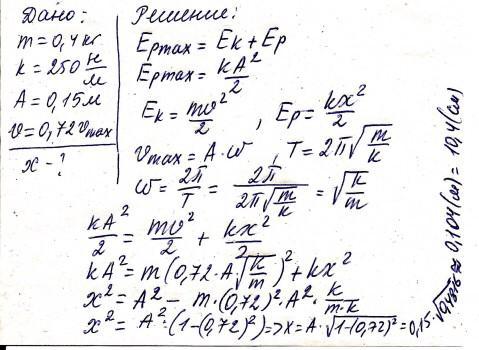 Дано:
m = 0,4 кг
k = 250 н/м
A = 0,15 м
v = 0,72 vmax
x - ?
Решение:
Epmax = Ek + Ep
Epmax = kA²/2
Ek = mv²/2 , Ep = kx²/2
vmax = A · ω , T = 2π√(m/k)
ω = 2π/T = 2π/(2π√(m/k)) = √(k/m)
kA²/2 = mv²/2 + kx²/2
kA² = m(0,72 · A√(k/m))² + kx²
x² = A² - m · (0,72)² · A² · k/(m·k)
x² = A² · (1-(0,72)²) => x = A · √(1-(0,72)²) = 0,15 · ≈ 0,104 (м) = 10,4 (см)